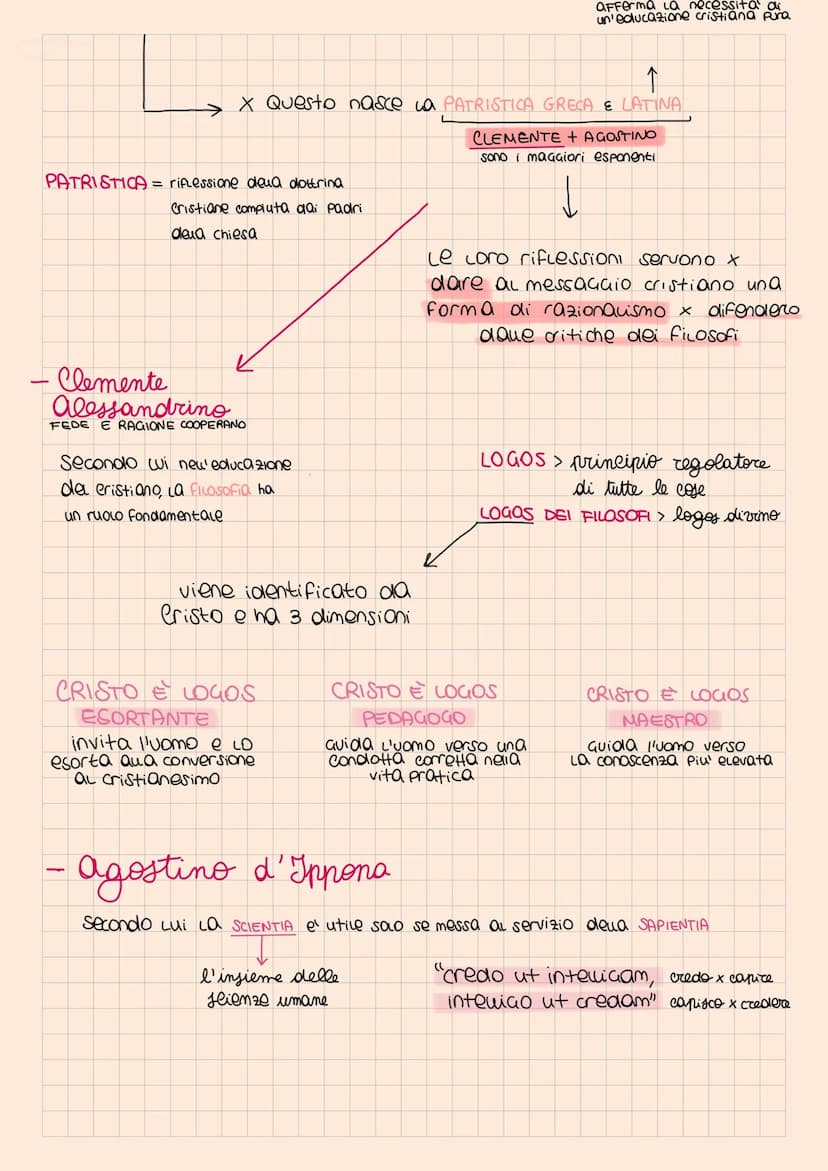 afferma la necessità di
un'educazione cristiana pura
x Questo nasce la PATRISTICA GRECA e LATINA
CLEMENTE + AGOSTINO
sono i maggiori esponenti
PATRISTICA = riflessione della dottrina
cristiane compiuta dai Padri
della chiesa
Le loro riflessioni servono x
dare al messaggio cristiano una
forma di razionalismo x difenderlo
dalle critiche dei filosofi
- Clemente
Alessandrino
FEDE E RAGIONE COOPERANO
secondo lui nell'educazione
del cristiano, la filosofia ha
un ruolo fondamentale
LOGOS > principio regolatore
di tutte le cose
LOGOS DEI FILOSOFI > logos divino
viene identificato da
Cristo e ha 3 dimensioni
CRISTO È LOGOS
ESORTANTE
invita l'uomo e lo
esorta alla conversione
al cristianesimo
CRISTO È LOGOS
PEDAGOGO
guida l'uomo verso una
condotta corretta nella
vita pratica
CRISTO È LOGOS
MAESTRO
guida l'uomo verso
la conoscenza più elevata
- Agostino d'Ippona
secondo lui la SCIENTIA è utile solo se messa al servizio della SAPIENTIA
l'insieme delle
scienze umane
"credo ut intelligam, credo x capire
intelligo ut credam" capisco x credere